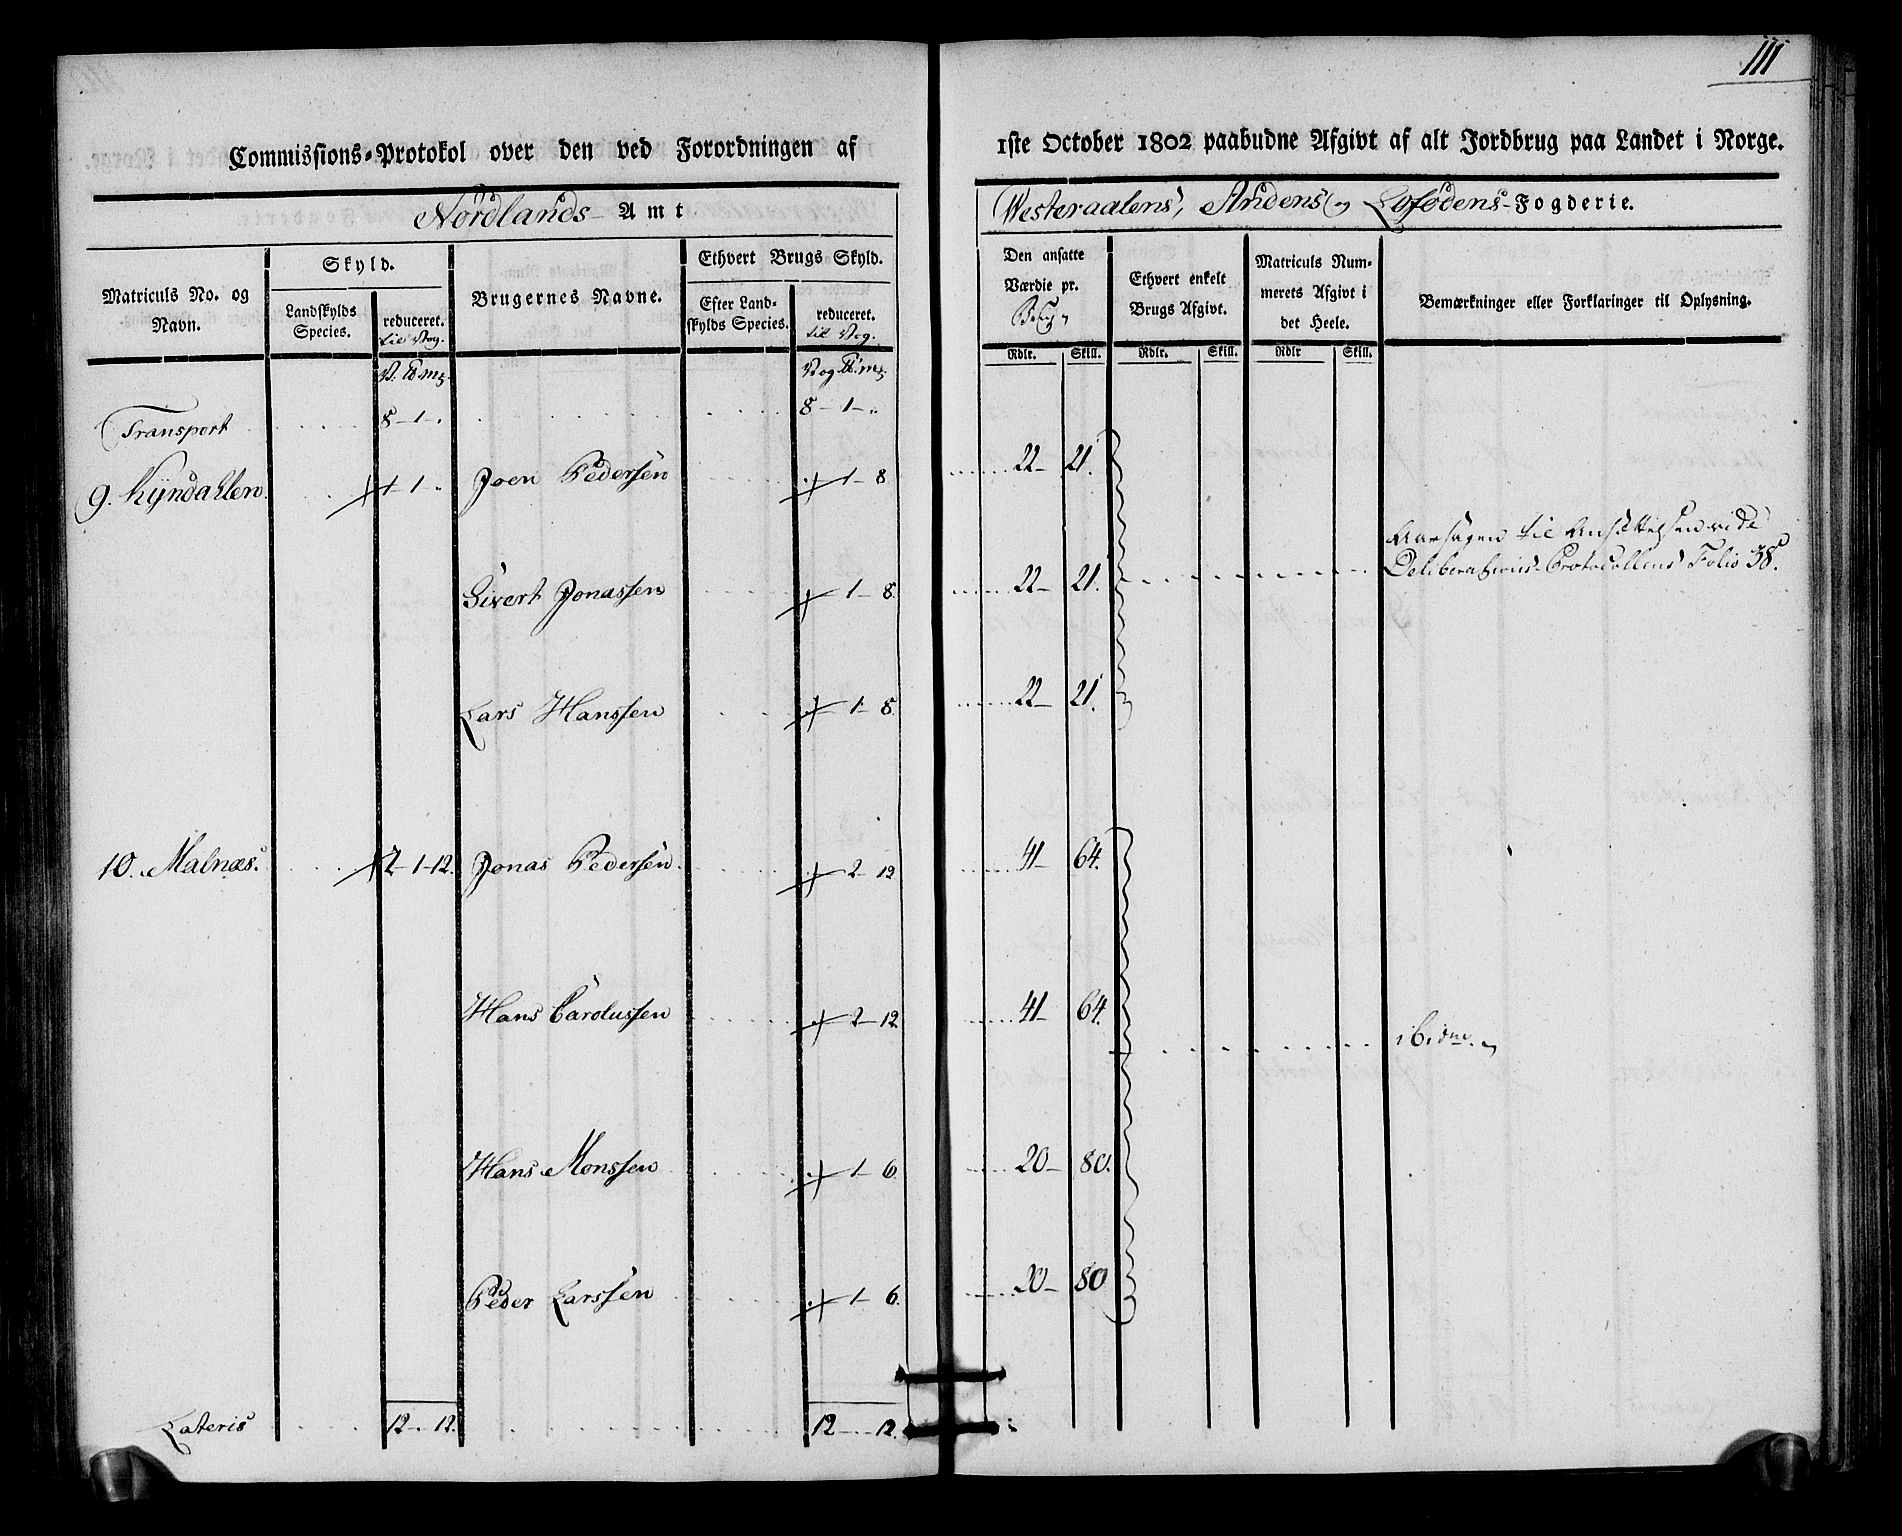 111
Commissions-Protokol over den ved Forordningen af 1ste October 1802 paabudne Afgivt af alt Jordbrug paa Landet i Norge.
Nordlands-Amt Westeraalens, Andens og Lofodens-Fogderie.
Matriculs No. og Navn.
Skyld.
Landskylds Species.
reduceret. til Vog.
Brugernes Navne.
Ethvert Brugs Skyld.
Efter Landskylds Species.
reduceret. til Vog.
Den ansatte Værdie pr.
Ethvert enkelt Brugs Afgivt.
Matriculs Nummerets Afgivt i det Heele.
Bemærkninger eller Forklaringer til Oplysning.
Rdlr. Skill. Rdlr. Skill. Rdlr Skill.
Transport 8-1-" 8-1-"
9. Kyndahlen 1-1-" Joen Pedersen 1-8 22-21.
Aarsagen til Ansættelsen vide
Deliberations-Protocollens Folio 38.
Sivert Jonassen 1-8. 22-21.
Lars Hanssen 1-8. 22-21.
10. Malnæs. 2-1-12. Jonas Pedersen. 2-12 41-64.
Hans Carolussen 2-12 41-64. ibidm.
Hans Monssen 1-6. 20-80.
Peder Larssen 1-6. 20-80
Lateris 12-"-12. 12-"-12.